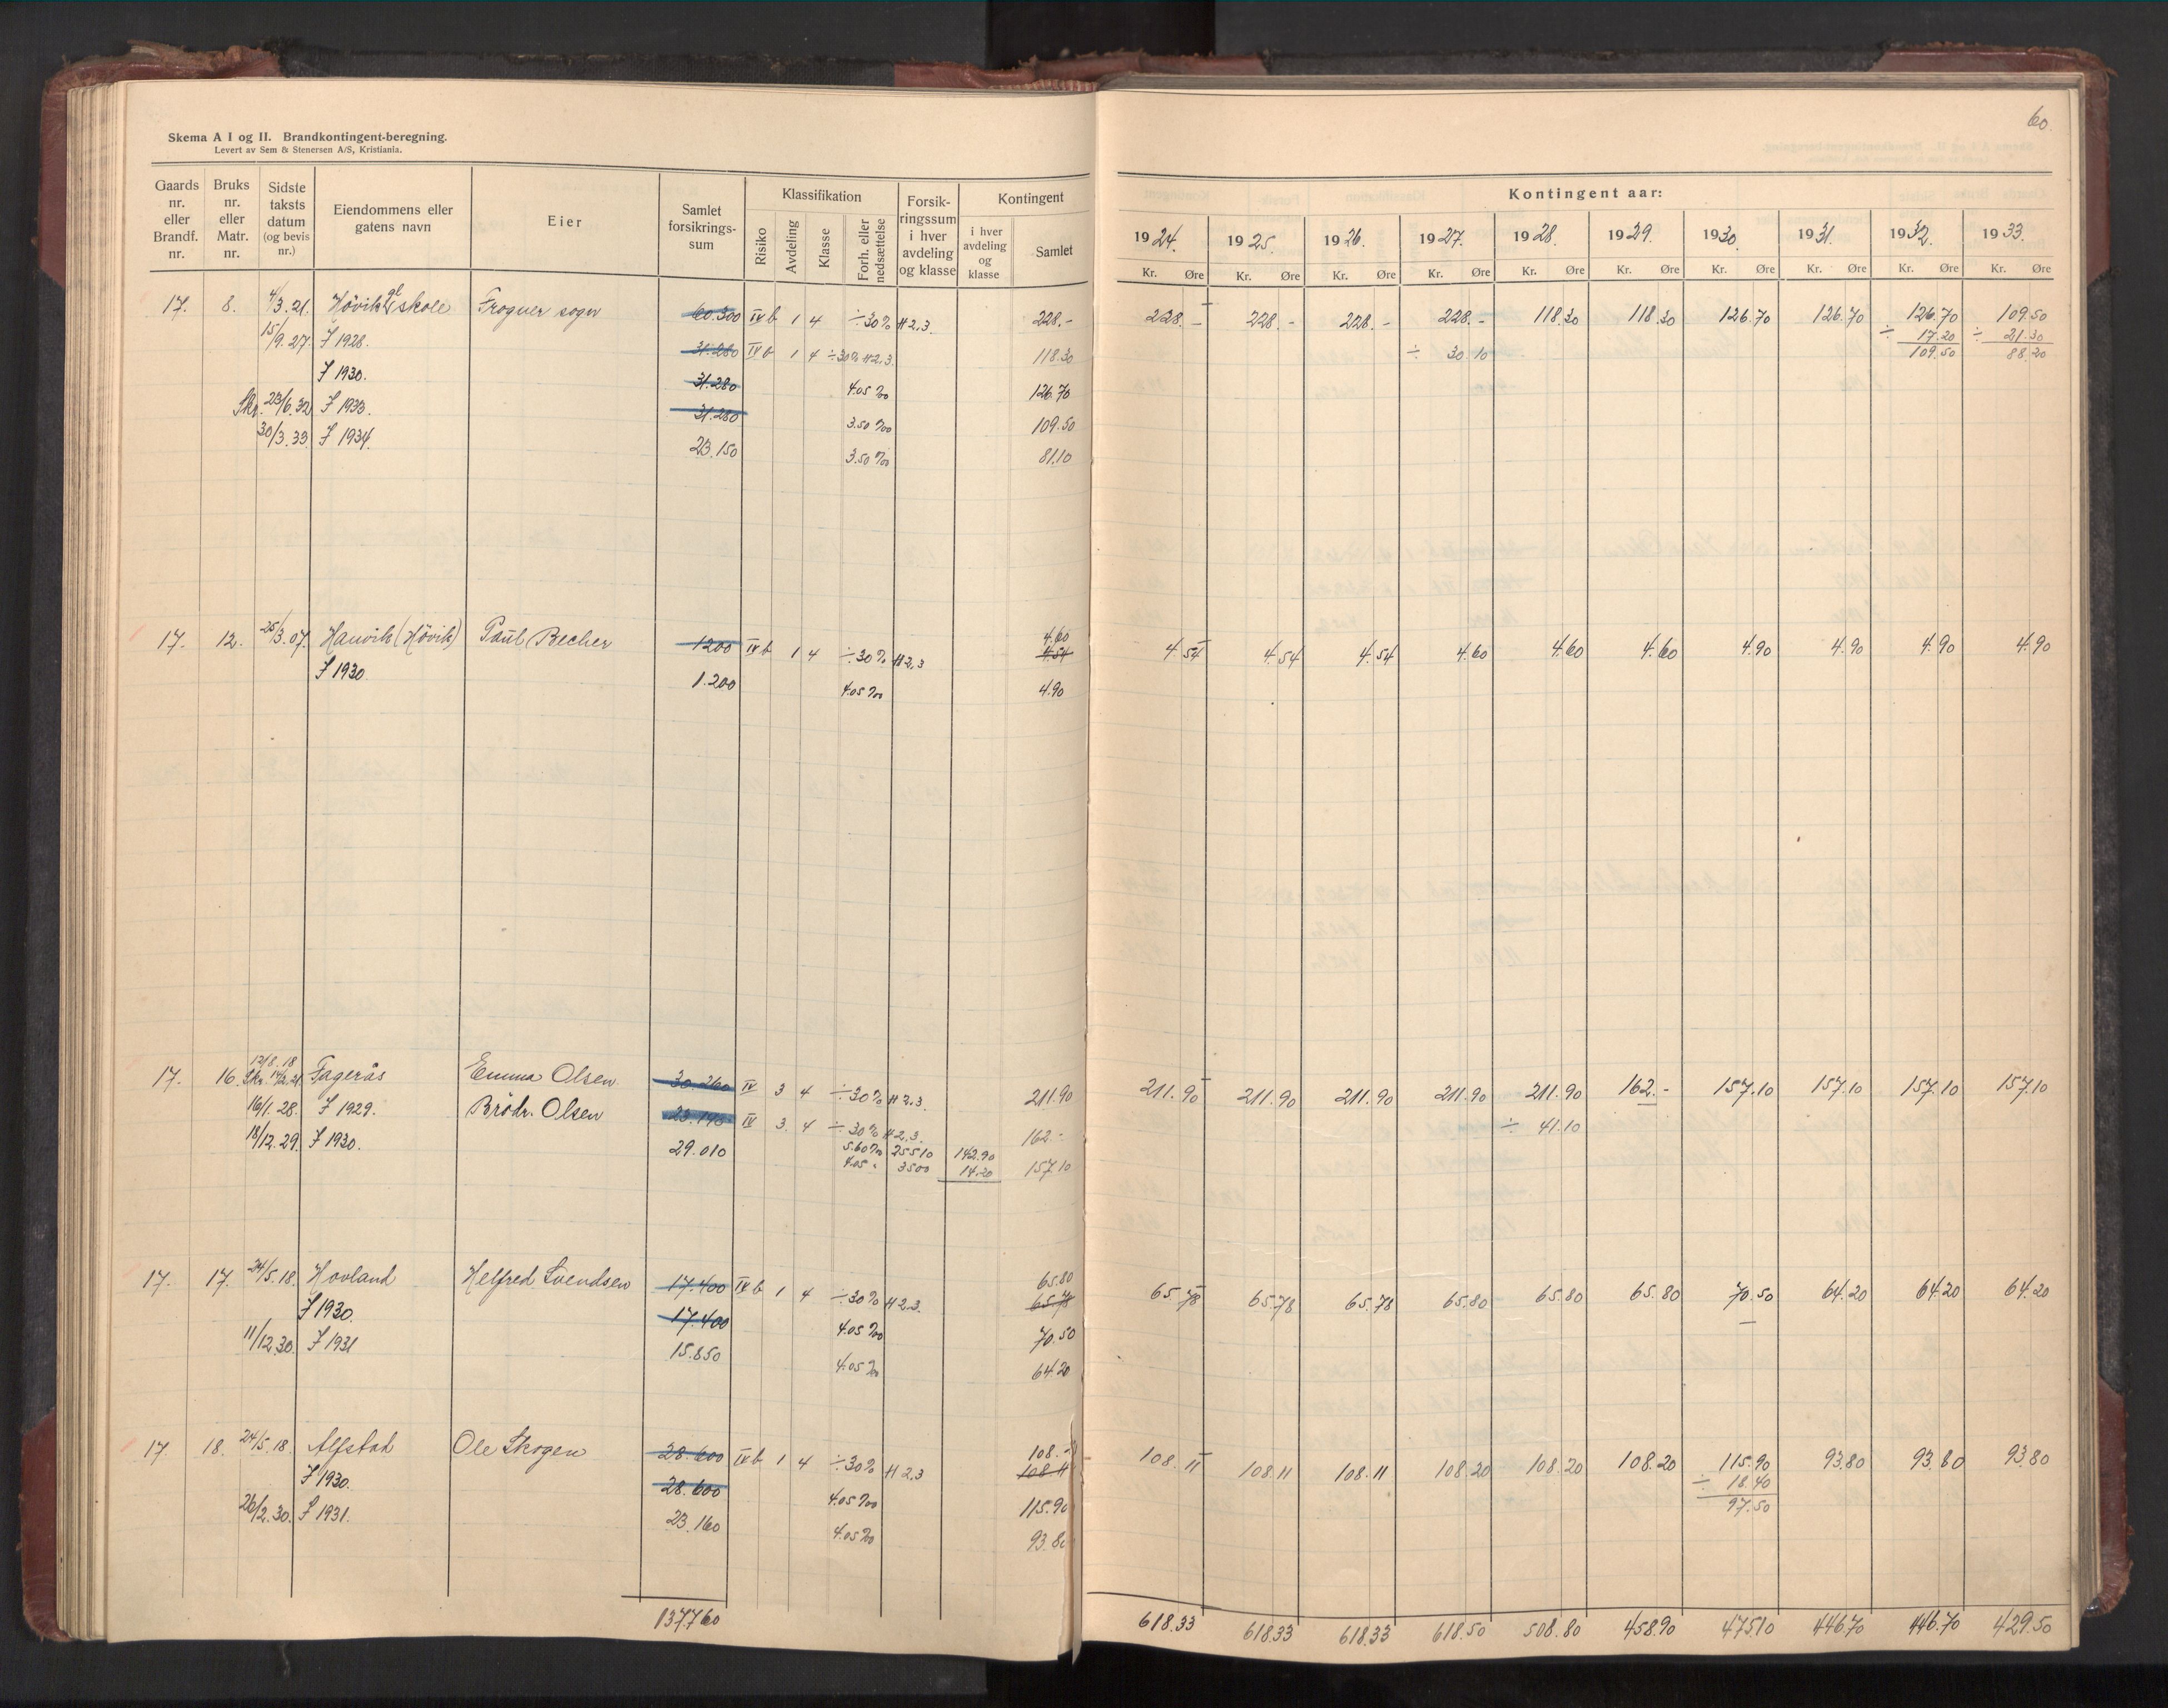 60
Skema A I og II. Brandkontingent-beregning.
Levert av Sem & Stenersen A/S, Kristiania.
Gaards nr. eller Brandf. nr.
Bruks nr. eller Matr. nr.
Sidste taksts datum (og bevis nr.)
Eiendommens eller gatens navn
Eier
Samlet forsikrings-sum
Klassifikation
Risiko
Avdeling
Klasse
Forh. eller nedsættelse
Forsik-ringssum i hver avdeling og klasse
Kontingent
i hver avdeling og klasse
Samlet
Kontingent aar:
1924. 1925. 1926. 1927. 1928. 1929. 1930. 1931. 1932. 1933.
Kr. Øre Kr. Øre Kr. Øre Kr. Øre Kr. Øre Kr. Øre Kr. Øre Kr. Øre Kr. Øre Kr. Øre
17. 8. 4/3.21. Hövik gl. skole Frogner sogn 60.300 IV b 1 4 ÷30% H 2.3. 228.- 228.- 228.- 228.- 228.- 118.30 118.30 126.70 126.70 126.70 109.50
15/9.27. F 1928. 31.280 IV b 1 4 ÷30% H 2.3. 118.30 ÷ 30.10 ÷ 17.20 ÷ 21.30
109.50 88.20
F 1930. 31.280 4.05 ‰ 126.70
Skr. 23/6.32 F 1933. 31.280 3.50 ‰ 109.50
30/3.33 F 1934. 23.150 3.50 ‰ 81.10
4.60
17. 12. 25/3.07. Hauvik (Hövik) Paul Becher 1200 IV b 1 4 ÷30% H 2,3 4.54 4.54 4.54 4.54 4.60 4.60 4.60 4.90 4.90 4.90 4.90
F 1930. 1.200 4.05 ‰ 4.90
12/8.18
17. 16. Skr. 14/2.21 Fagerås Emma Olsen 30.260 IV 3 4 ÷30% H 2.3. 211.90 211.90 211.90 211.90 211.90 211.90 162.- 157.10 157.10 157.10 157.10
16/1.28. F 1929. Brödr. Olsen 23.140 IV 3. 4 ÷30% H 2.3. 162.- ÷ 41.10
18/12.29. F 1930. 29.010 5.60‰ 25510 142.90
4.05 " 3500 14.20 157.10
65.80
17. 17. 24/5.18. Hovland Helfred Svendsen 17.400 IV b 1 4 ÷30% H 2.3. 65.78 65.78 65.78 65.78 65.80 65.80 65.80 70.50 64.20 64.20 64.20
F 1930. 17.400 4.05 ‰ 70.50
11/12.30. F 1931 15.850 4.05 ‰ 64.20
108.-
17 18. 24/5.18. Alfstad Ole Skogen 28.600 IV b 1 4 ÷30% H 2,3 108.11 108.11 108.11 108.11 108.20 108.20 108.20 115.90 93.80 93.80 93.80
F 1930. 28.600 4.05 ‰ 115.90 ÷ 18.40
97.50
26/2.30. F 1931. 23.160 4.05 ‰ 93.80
137760 618.33 618.33 618.33 618.50 508.80 458.90 475.10 446.70 446.70 429.50